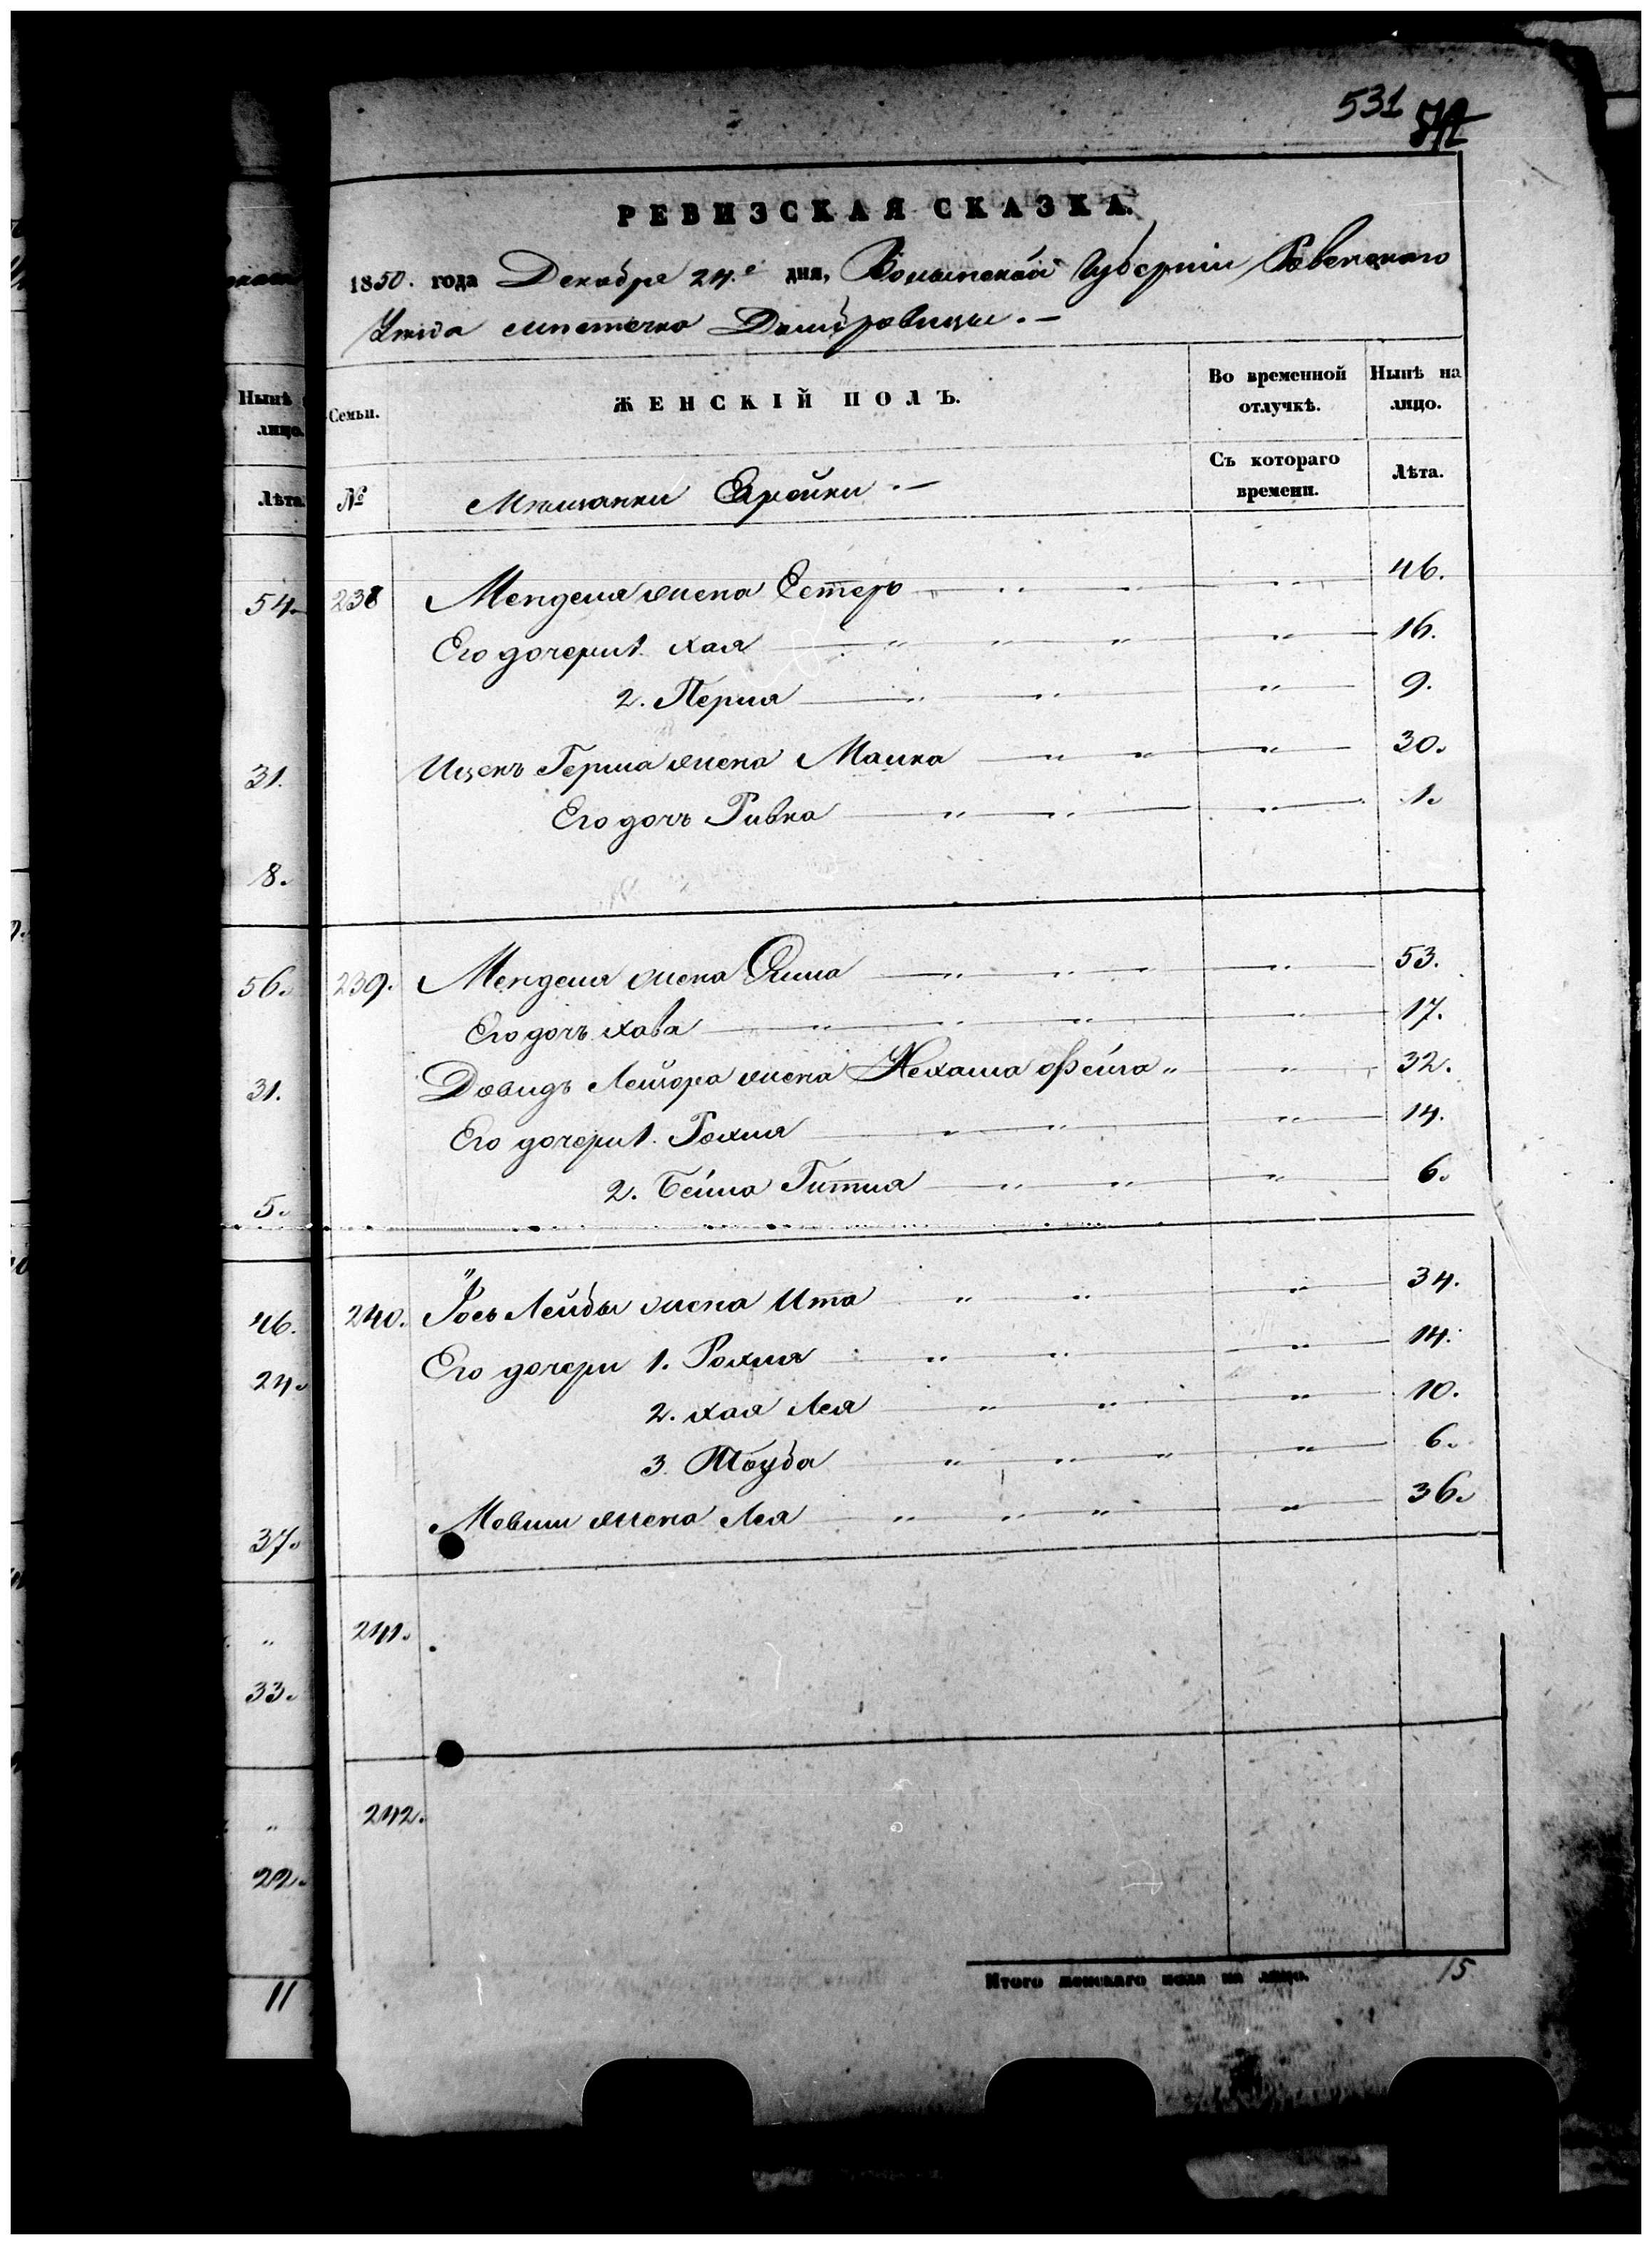 531 572
РЕВИЗСКАЯ СКАЗКА.
1850. года Декабря 24.е дня, Волынской Губерніи Ровенскаго
Уѣзда мѣстечка Домбровицы. —
Нынѣ
лицо.
Лѣта.
Семьи.
ЖЕНСКІЙ ПОЛЪ.
Во временной отлучкѣ.
Нынѣ на лицо.
№
Мѣщанки Еврейки. —
Съ котораго времени.
Лѣта.
54. 238 Менделя жена Естеръ 46.
Его дочери 1. Хая 16.
2. Перля 9.
31. Ицекъ Герша жена Малка 30.
Его дочь Ривка 1.
8.
56. 239. Менделя жена 53.
Его дочь Хава 17.
31. Довидъ Лейзора жена Нехама Фейга 32.
Его дочери 1. Рохля 14.
2. Бейла Гитля 6.
5.
46. 240. Лейбы жена Ита 34.
24. Его дочери 1. Рохля 14.
2. Хая Лея 10.
3. Тауба 6.
37. Мовши жена Лея 36.
" 241.
33.
" 242.
22.
11
Итого женскаго пола на лицо. 15